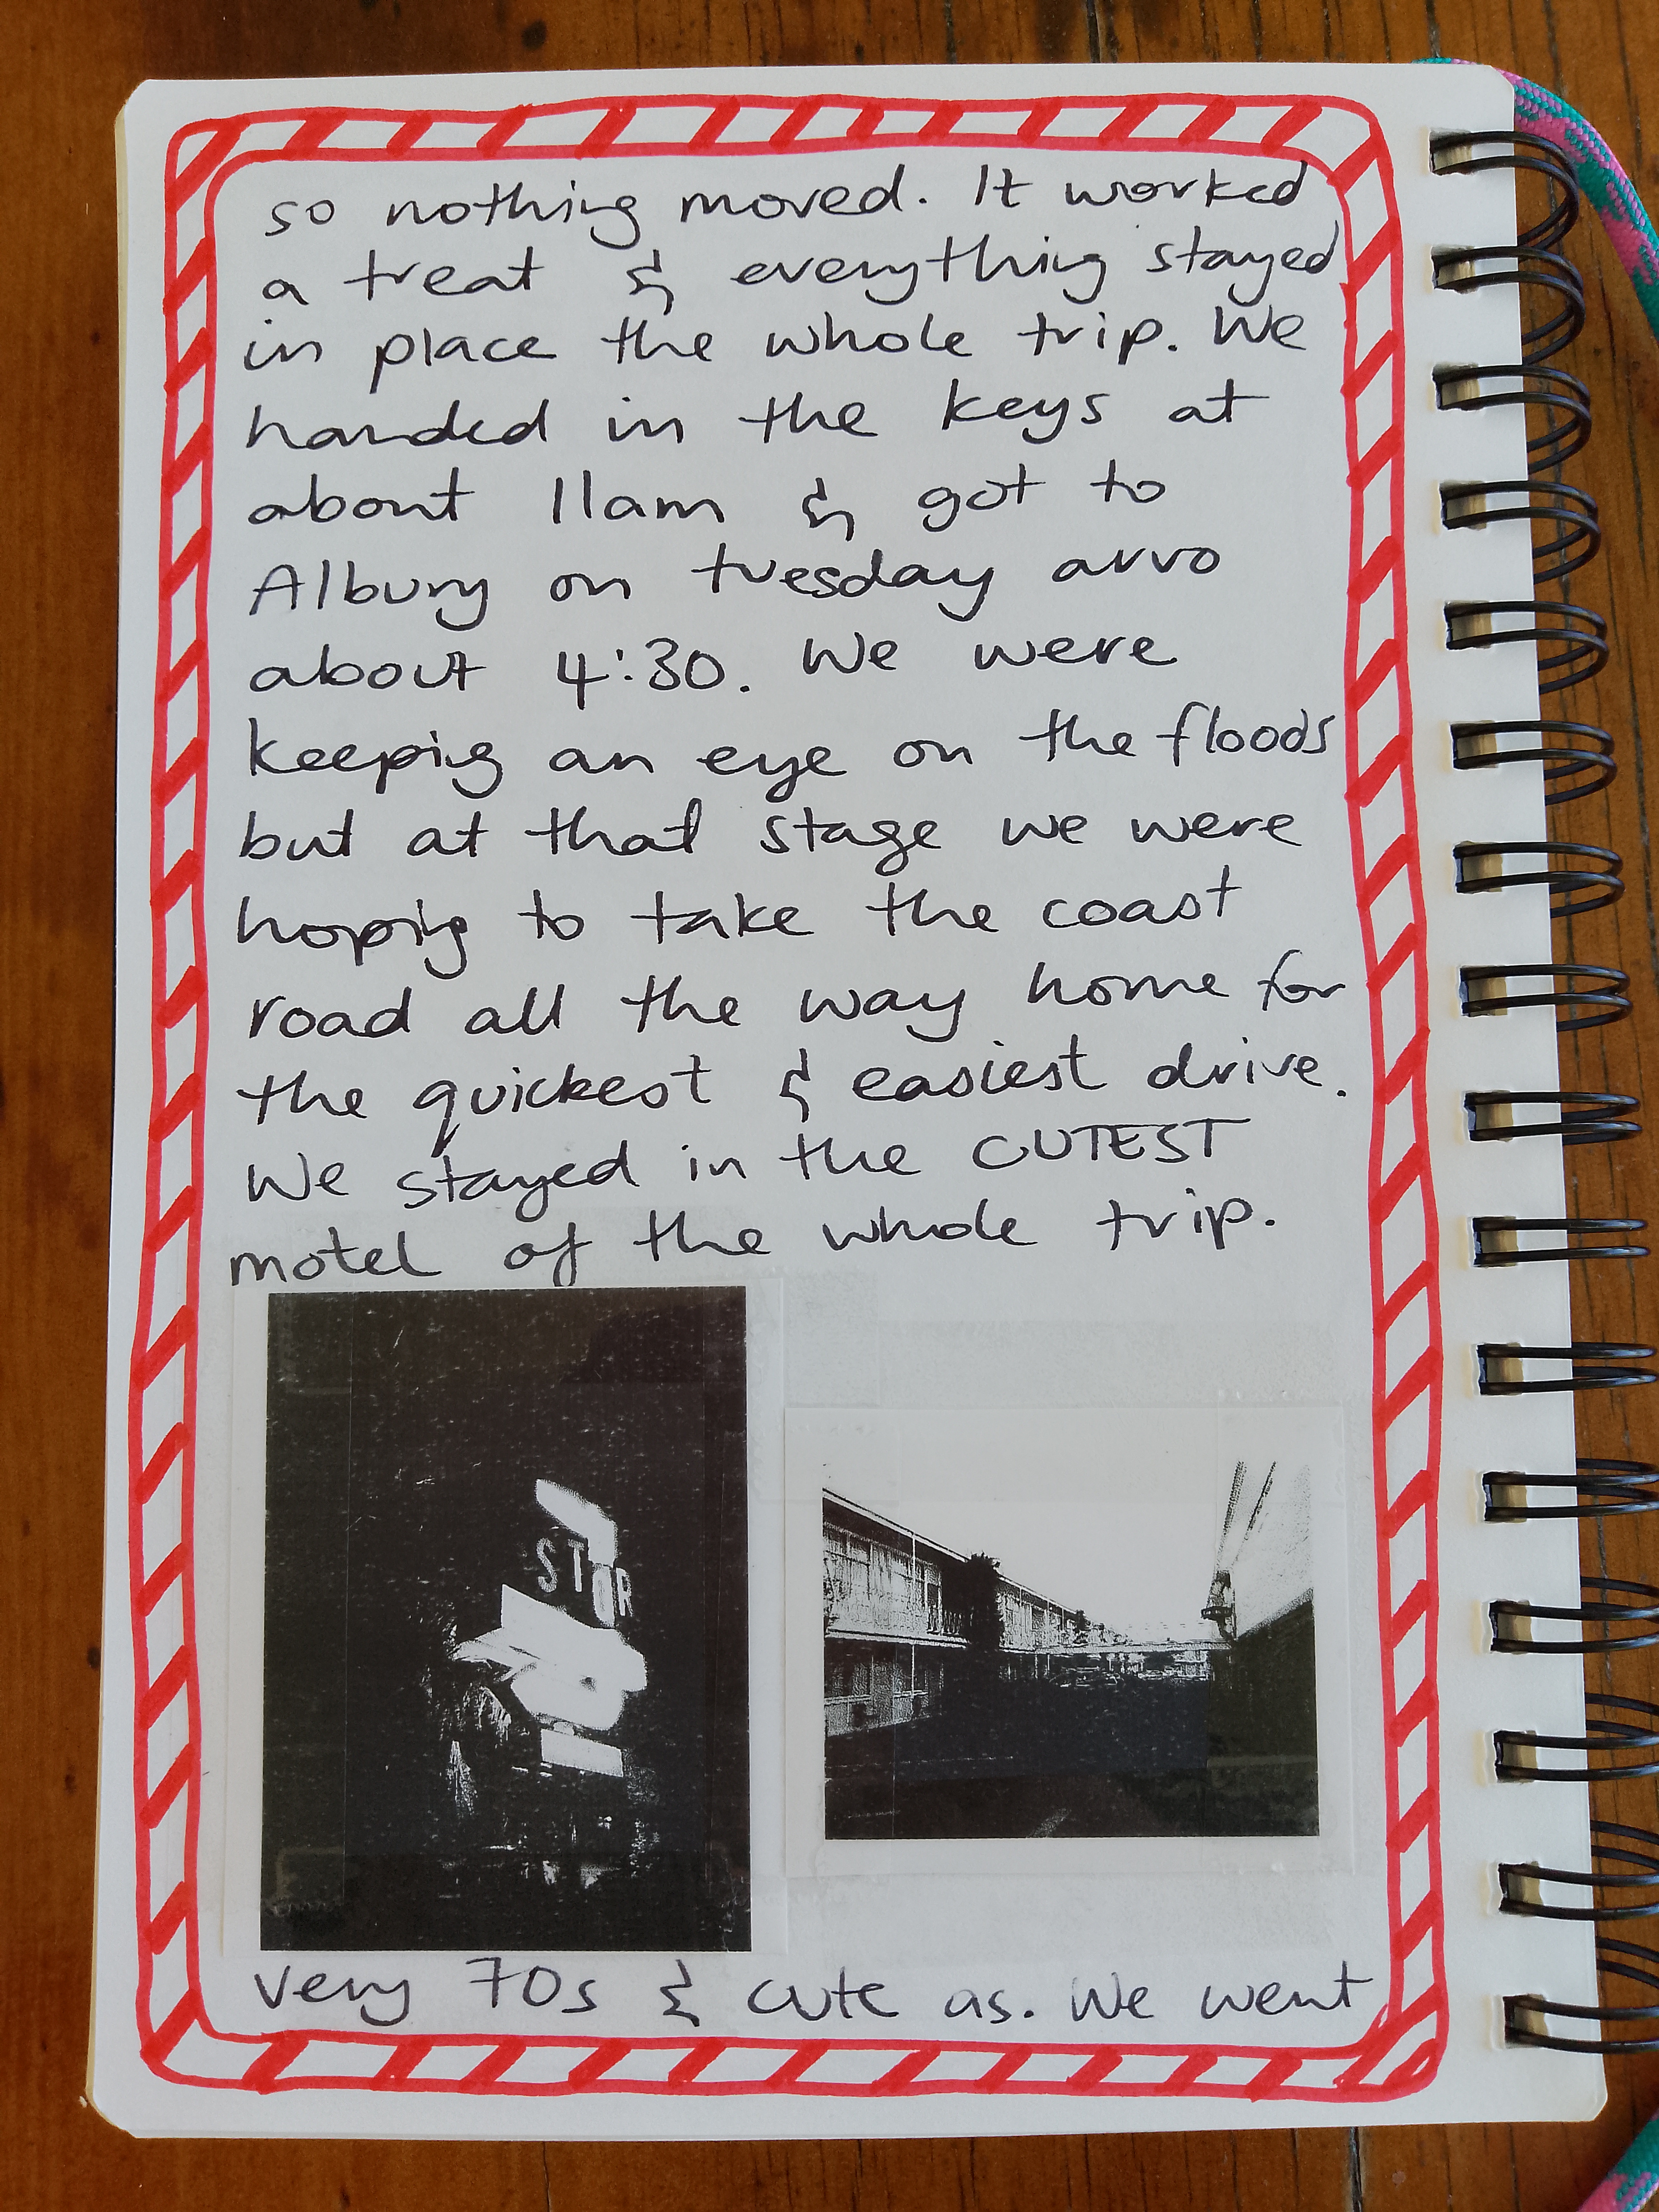 so nothing moved. It worked
a treat & everything stayed
in place the whole trip. We
handed in the keys at
about 11am & got to
Albury on tuesday arvo
about 4:30. We were
keeping an eye on the floods
but at that stage we were
hoping to take the coast
road all the way home for
the quickest & easiest drive.
We stayed in the CUTEST
motel of the whole trip.
STOR
very 70s & cute as. We went